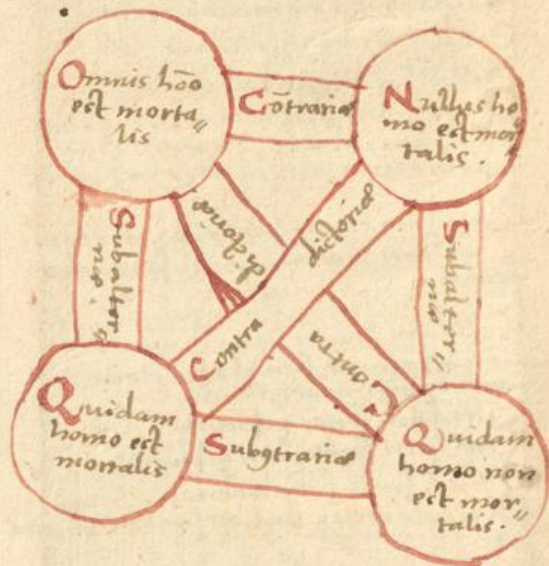 Omnis hōo
est morta〃
lis
Cōntrariæ
Nullus ho〃
mo est mor〃
talis.
Subalter
næ.
Contra
dictoriæ
Contra
dictoriæ
Subalter〃
næ
Quidam
homo est
mortalis
Subꝯtrariæ
Quidam
homo non
est mor〃
talis.